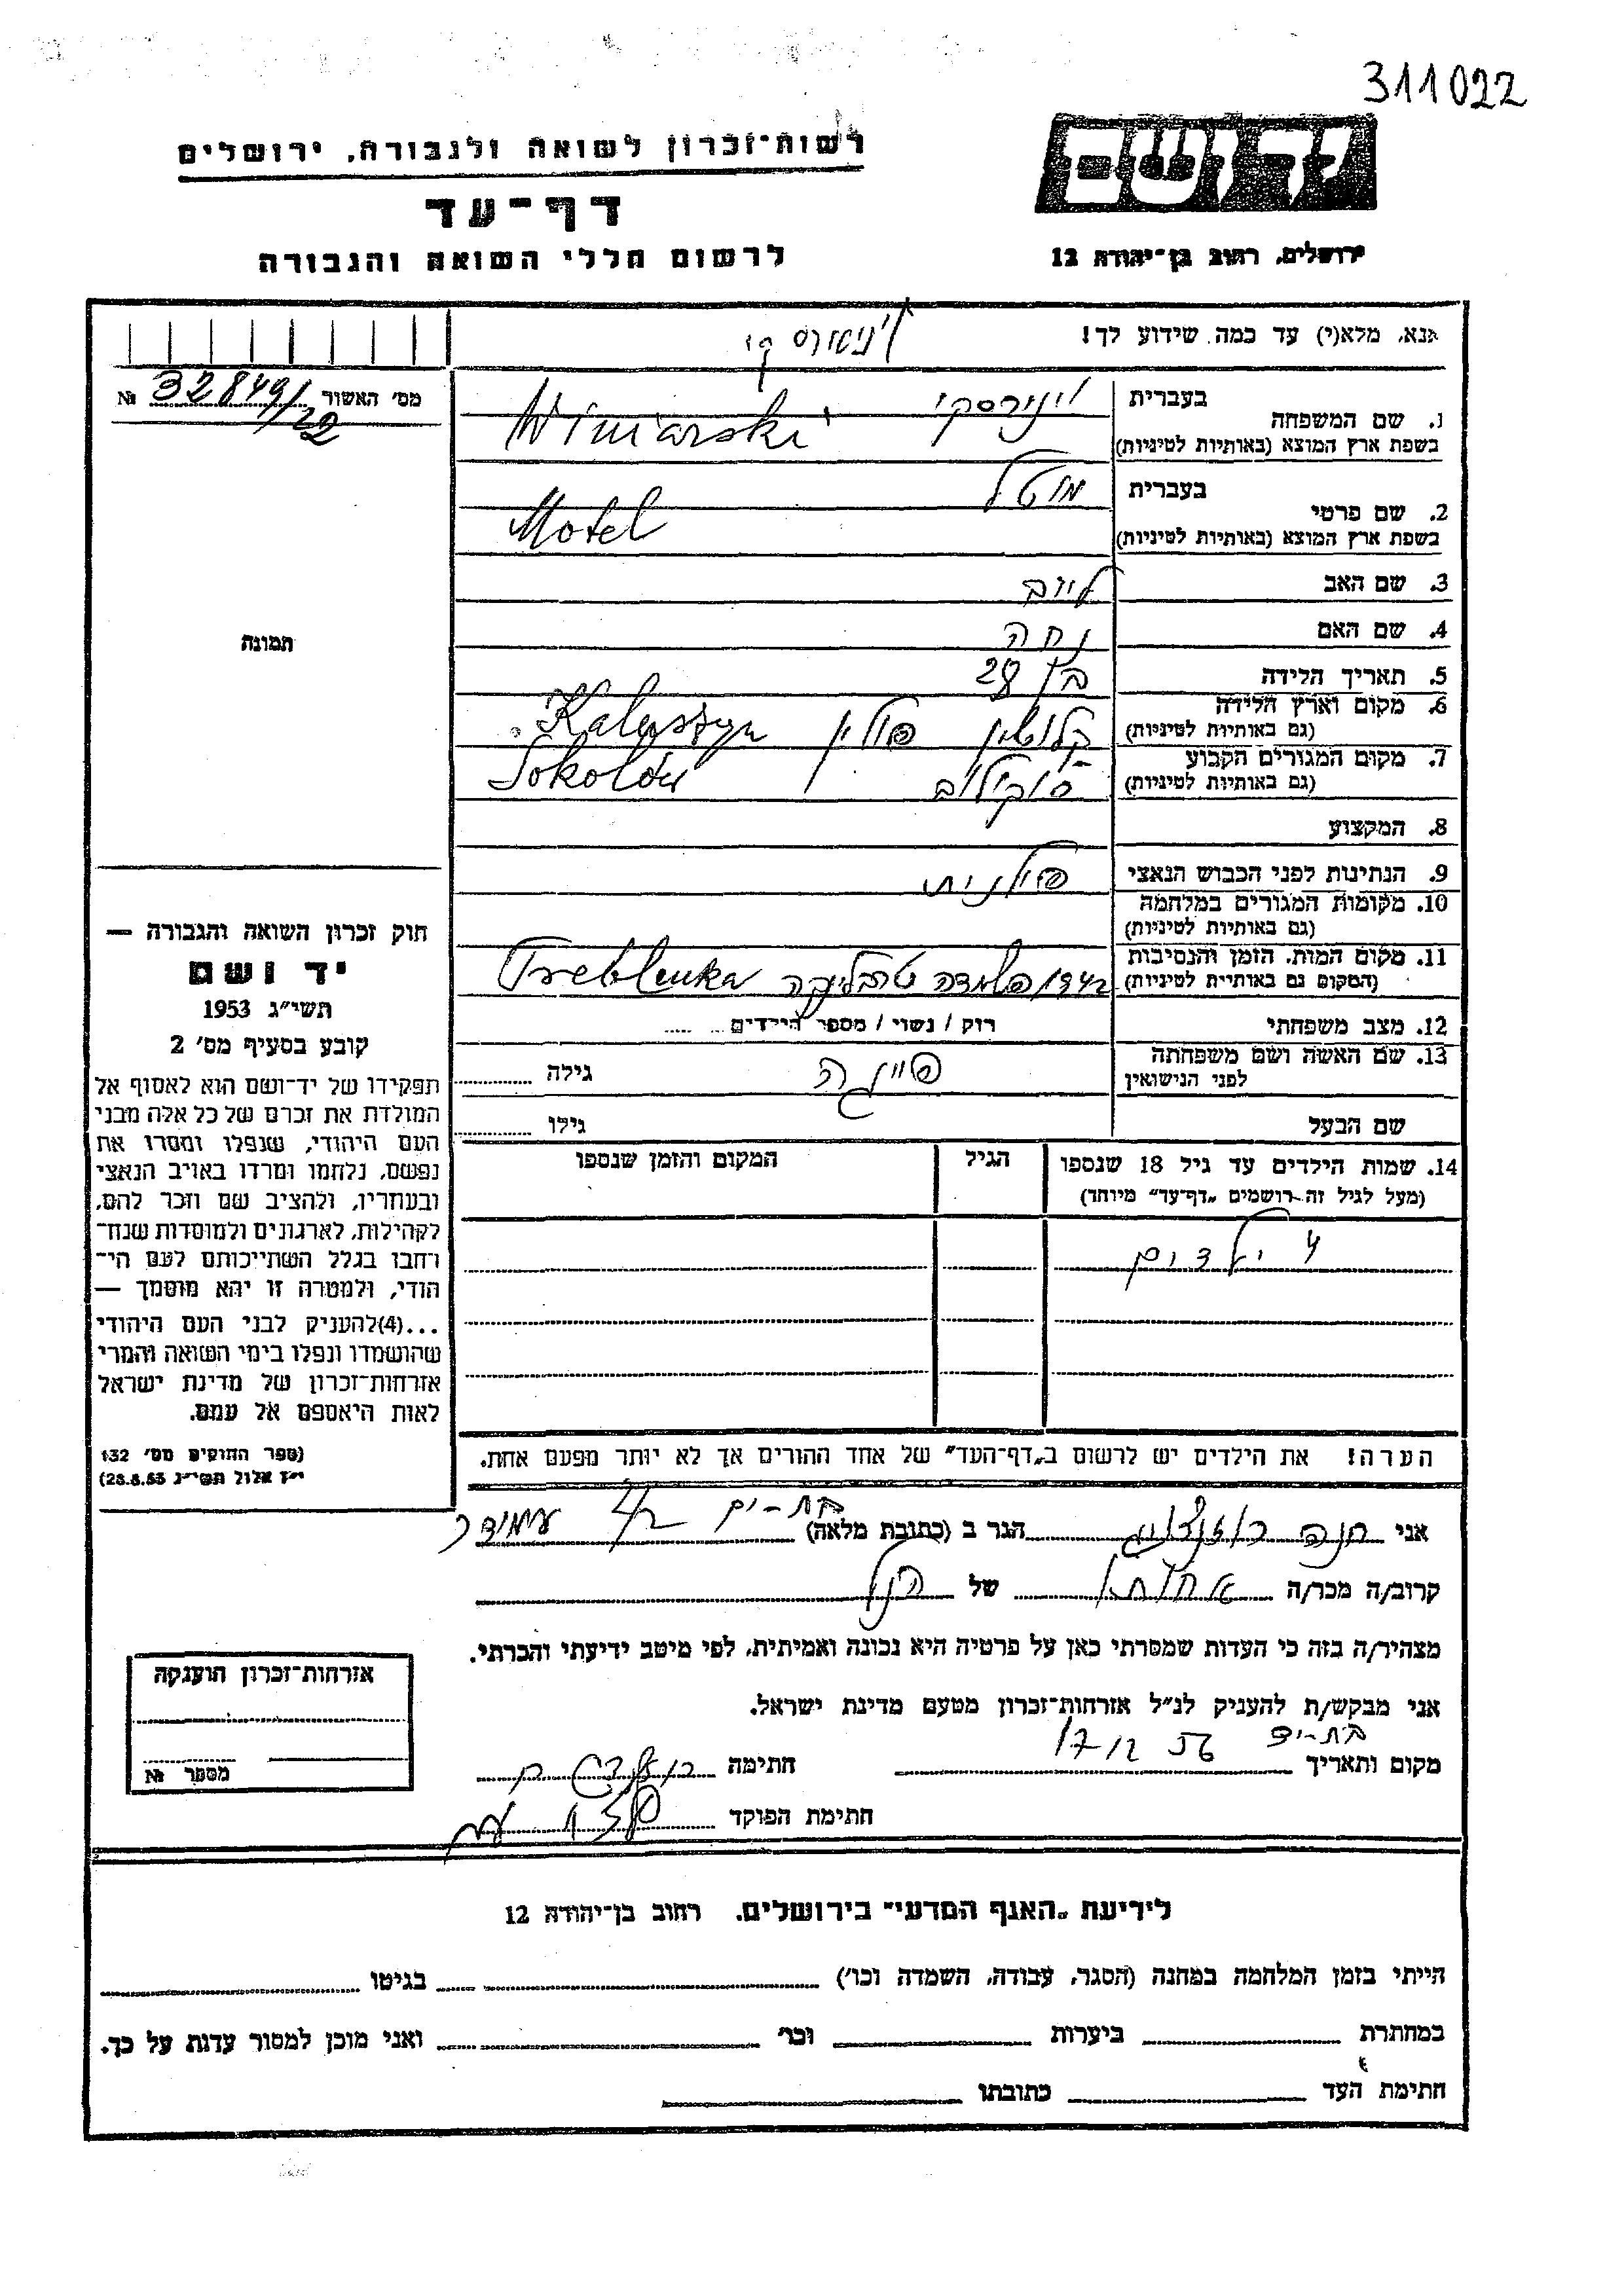 311022
רשות־זכרון לשואה ולגבורה, ירושלים
יד ושם
דף־עד
לרשום חללי השואה והגבורה
ירושלים, רחוב בן־יהודה 12
אנא, מלא(י) עד כמה שידוע לך!
מס׳ האשור 32849/22 №
בעברית
1. שם המשפחה
בשפת ארץ המוצא (באותיות לטיניות) Winiarski
בעברית מוטל
2. שם פרטי
בשפת ארץ המוצא (באותיות לטיניות) Motel
3. שם האב
4. שם האם נחה
5. תאריך הלידה בן 28
6. מקום וארץ הלידה
(גם באותיות לטיניות) קלושין פולין Kaluszyn
7. מקום המגורים הקבוע
(גם באותיות לטיניות) סוקולוב Sokolów
8. המקצוע
9. הנתינות לפני הכבוש הנאצי פולנית
10. מקומות המגורים במלחמה
(גם באותיות לטיניות)
11. מקום המות, הזמן והנסיבות
(המקום גם באותיות לטיניות) 1942 טרבלינקה Treblenka
12. מצב משפחתי רוק / נשוי / מספר הילדים
13. שם האשה ושם משפחתה
לפני הנישואין פייגה גילה
שם הבעל גילו
14. שמות הילדים עד גיל 18 שנספו הגיל המקום והזמן שנספו
(מעל לגיל זה רושמים „דף־עד״ מיוחד)
4 ילדים
הערה! את הילדים יש לרשום ב„דף־העד״ של אחד ההורים אך לא יותר מפעם אחת.
תמונה
חוק זכרון השואה והגבורה —
יד ושם
תשי״ג 1953
קובע בסעיף מס׳ 2
תפקידו של יד־ושם הוא לאסוף אל
המולדת את זכרם של כל אלה מבני
העם היהודי, שנפלו ומסרו את
נפשם, נלחמו ומרדו באויב הנאצי
ובעוזריו, ולהציב שם וזכר להם,
לקהילות, לארגונים ולמוסדות שנח־
רחבו בגלל השתייכותם לעם הי־
הודי, ולמטרה זו יהא מוסמך —
...(4) להעניק לבני העם היהודי
שהושמדו ונפלו בימי השואה והמרי
אזרחות־זכרון של מדינת ישראל
לאות היאספם אל עמם.
(ספר החוקים מס׳ 132
י״ז אלול תשי״ג 28.8.53)
אני חנה הגר ב (כתובת מלאה) בת-ים
קרוב/ה מכר/ה של הנ״ל
מצהיר/ה בזה כי העדות שמסרתי כאן על פרטיה היא נכונה ואמיתית, לפי מיטב ידיעתי והכרתי.
אני מבקש/ת להעניק לנ״ל אזרחות־זכרון מטעם מדינת ישראל.
מקום ותאריך בת-ים 17/12 חתימה
חתימת הפוקד
אזרחות־זכרון הוענקה
מספר №
לידיעת „האגף המדעי״ בירושלים. רחוב בן־יהודה 12
הייתי בזמן המלחמה במחנה (הסגר, עבודה, השמדה וכו׳) בגיטו
במחתרת ביערות וכו׳ ואני מוכן למסור עדות על כך.
חתימת העד כתובתו